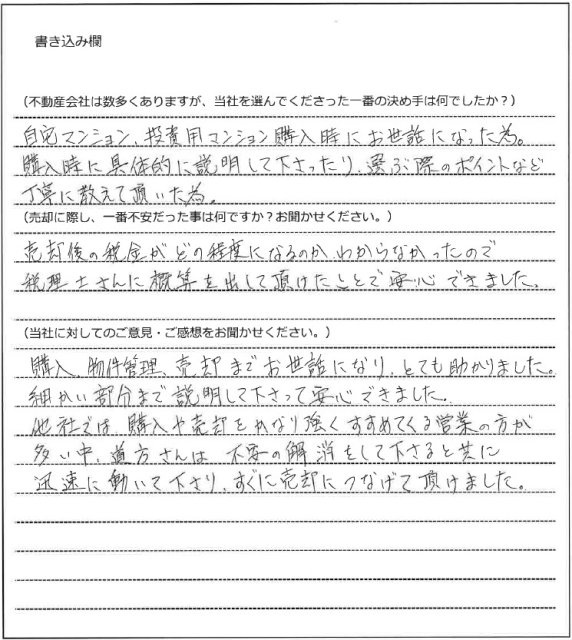 書き込み欄
（不動産会社は数多くありますが、当社を選んでくださった一番の決め手は何でしたか？）
自宅マンション、投資用マンション購入時にお世話になった為。
購入時に具体的に説明して下さったり、選ぶ際のポイントなど
丁寧に教えて頂いた為。
（売却に際し、一番不安だった事は何ですか？お聞かせください。）
売却後の税金がどの程度になるのか、わからなかったので
税理士さんに概算を出して頂けたことで安心できました。
（当社に対してのご意見・ご感想をお聞かせください。）
購入、物件管理、売却までお世話になり、とても助かりました。
細かい部分まで説明して下さって安心できました。
他社では、購入や売却をかなり強くすすめてくる営業の方が
多い中、道方さんは 不安の解消をして下さると共に
迅速に動いて下さり、すぐに売却につなげて頂けました。